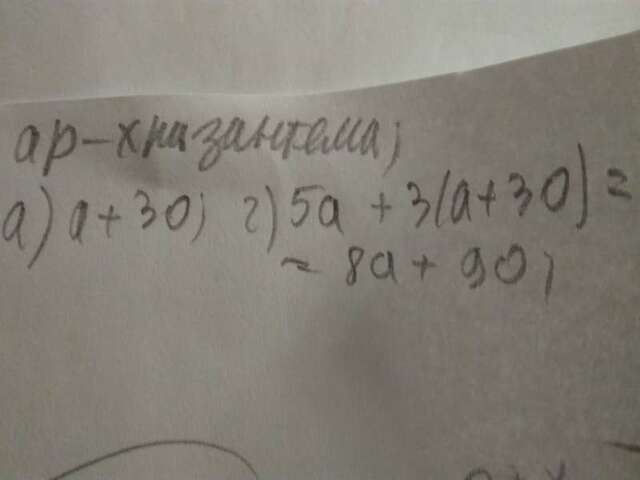 ар-хризантема;
а) а+30; г) 5а + 3(а+30) =
= 8а + 90;